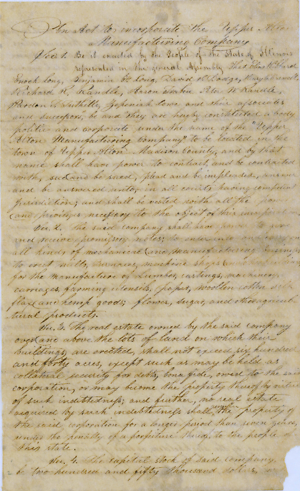 An Act to incorporate the Upper Alton
Manufacturing Company
Sec 1. Be it enacted by the People of the State of Illinois
represented in the General Assembly That
Enoch Long, Benjamin F. Long,
Richard
Zephaniah Lowe and their associates
and successors, be and they are hereby constituted a body
politic and corporate under the name of the Upper
Alton Manufacturing Company to be located in the
town of Upper Alton, Madison County, and by that
name shall have power to contract, and be contracted
with, sue and be sued, plead and be impleaded, answer
and be answered unto, in all courts having competent
jurisdiction; and shall be vested with all the powers
and privileges necessary to the object of their incorporation
Sec. 2. The said company shall have power to
all kinds of mechanical
to erect mills, houses, machine shops
for the manufacture of lumber, castings, machinery
carriages, farming utensils, paper, woollen cotton silk
flax and hemp goods, flour, sugar, and other agricul-
tural products.
Sec. 3. The real estate owned by the said company
over and above the lots of land on which their
buildings are erected, shall not exceed six hundred
and forty acres, except such as may be held as
collateral security for debts, bona fide, owed to the said
corporation, or may become the property thereof by virtue
of such indebtedness, and further, no real estate
acquired by such indebtedness shall be the property of
the said corporation for a longer period than seven years,
under the penalty of a forfeiture thereof to the people of
this state.
Sec. 4. The capital stock of said company
be two hundred and fifty thousand dollars